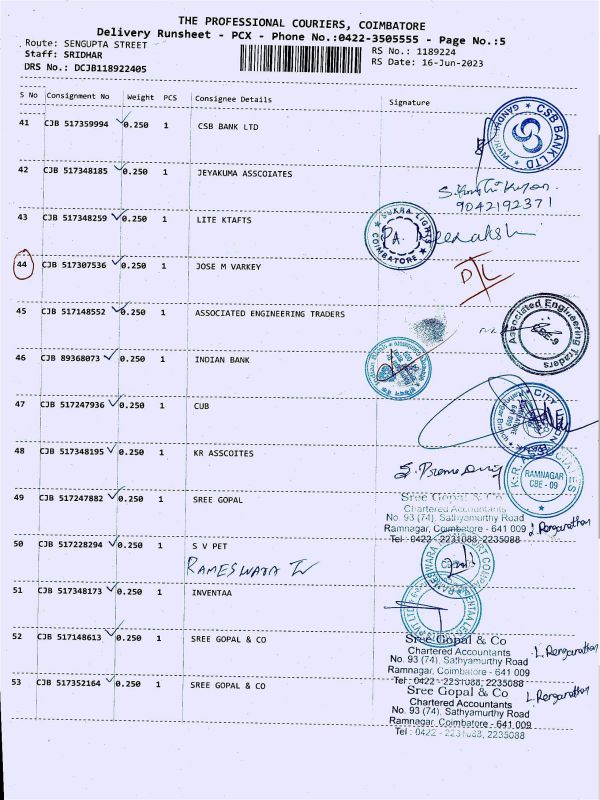 THE PROFESSIONAL COURIERS, COIMBATORE
Delivery Runsheet - PCX - Phone No.:0422-3505555 - Page No.:5
Route: SENGUPTA STREET
Staff: SRIDHAR
DRS No.: DCJB118922405
RS No.: 1189224
RS Date: 16-Jun-2023
S No Consignment No Weight PCS Consignee Details Signature
41 CJB 517359994 0.250 1 CSB BANK LTD
CSB BANK LTD
42 CJB 517348185 0.250 1 JEYAKUMA ASSCOIATES
9042192371
43 CJB 517348259 0.250 1 LITE KTAFTS
LIGHTS
COIMBATORE
44 CJB 517307536 0.250 1 JOSE M VARKEY
D/L
45 CJB 517148552 0.250 1 ASSOCIATED ENGINEERING TRADERS
Associated Engineering Traders
CBE-9
46 CJB 89368073 0.250 1 INDIAN BANK
47 CJB 517247936 0.250 1 CUB
CITY UNION
48 CJB 517348195 0.250 1 KR ASSCOITES
K.R. ASSOCIATES
RAMNAGAR
CBE - 09
49 CJB 517247882 0.250 1 SREE GOPAL
Sree Gopal & Co
Chartered Accountants
No. 93 (74), Sathyamurthy Road
Ramnagar, Coimbatore - 641 009
Tel : 0422 - 2231088, 2235088
L. Renganathan
50 CJB 517228294 0.250 1 S V PET
RAMESWARA
51 CJB 517348173 0.250 1 INVENTAA
52 CJB 517148613 0.250 1 SREE GOPAL & CO
Sree Gopal & Co
Chartered Accountants
No. 93 (74), Sathyamurthy Road
Ramnagar, Coimbatore - 641 009
Tel : 0422 - 2231088, 2235088
L. Renganathan
53 CJB 517352164 0.250 1 SREE GOPAL & CO
Sree Gopal & Co
Chartered Accountants
No. 93 (74), Sathyamurthy Road
Ramnagar, Coimbatore - 641 009
Tel : 0422 - 2231088, 2235088
L. Renganathan